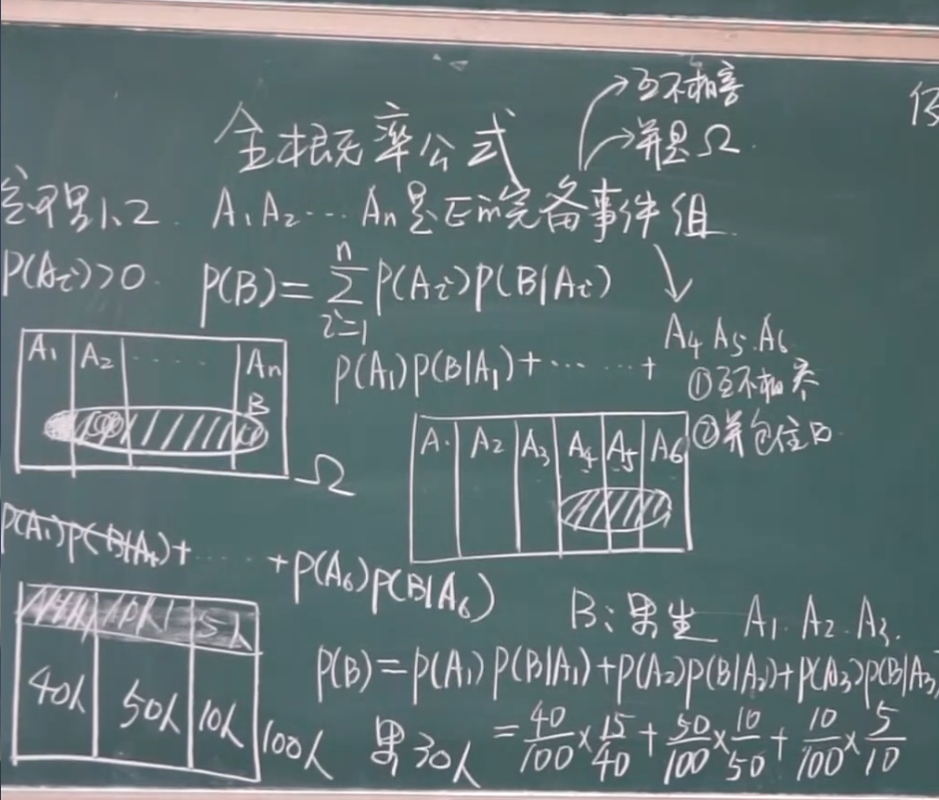 全概率公式
互不相容
并是Ω
定理1.2 A₁A₂…An是E的完备事件组
P(Ai)>0. P(B)=∑ⁿᵢ₌₁P(Ai)P(B|Ai)
A₁ A₂ …… An
B
Ω
P(A₁)P(B|A₁)+……+
A₄ A₅.A₆
①互不相容
②并包住B
A₁ A₂ A₃ A₄ A₅ A₆
P(A₁)P(B|A₁)+……+P(A₆)P(B|A₆)
10人 5人
40人 50人 10人
100人 男30人
B:男生 A₁.A₂.A₃.
P(B)=P(A₁)P(B|A₁)+P(A₂)P(B|A₂)+P(A₃)P(B|A₃)
=40/100×15/40+50/100×10/50+10/100×5/10